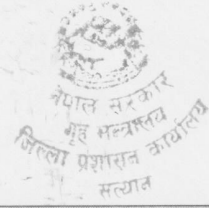 नेपाल सरकार
गृह मन्त्रालय
जिल्ला प्रशासन कार्यालय
सल्यान